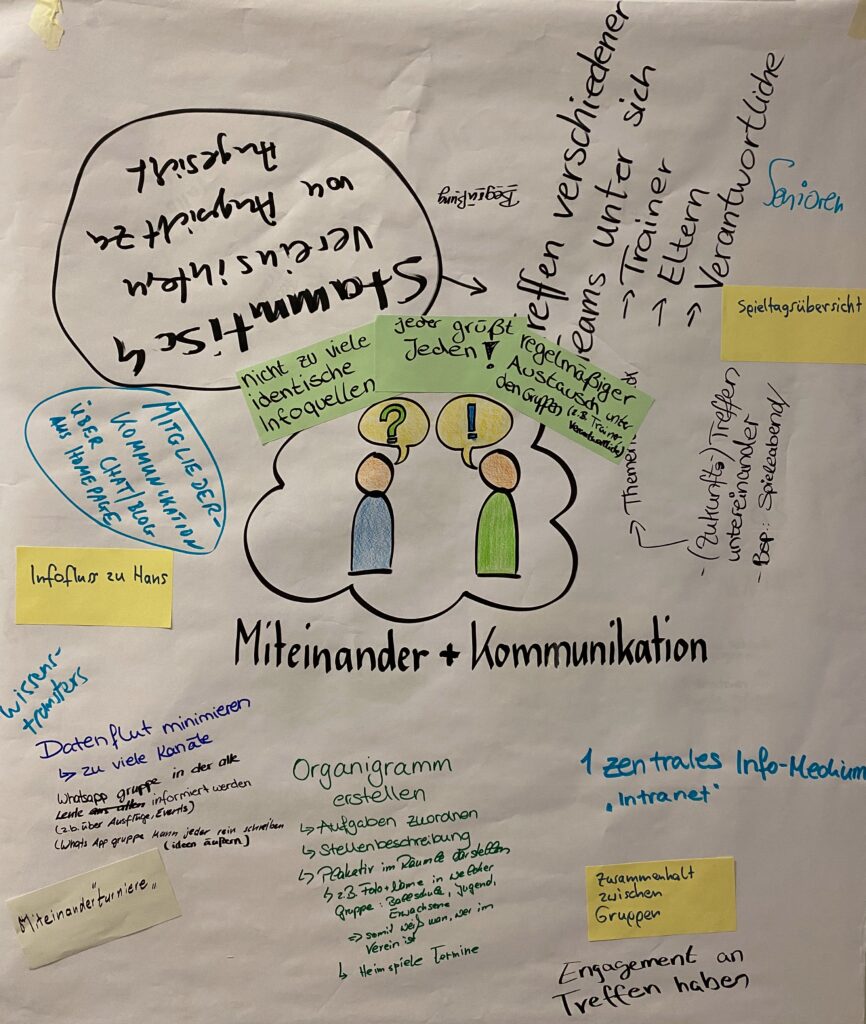 Stammtisch
vereinsintern
von Angesicht zu
Angesicht
Begrüßung
Treffen verschiedener
Teams unter sich
→ Trainer
→ Eltern
→ Verantwortliche
Senioren
Spieltagsübersicht
nicht zu viele
identische
Infoquellen
jeder grüßt
Jeden!
regelmäßiger
Austausch unter
den Gruppen (z.B. Trainer,
Verantwortliche)
? !
→ Themen
- (Zukunfts-) Treffen
untereinander
- Bsp.: Spieleabend
MITGLIEDER-
KOMMUNIKATION
ÜBER CHAT/BLOG
AUS HOMEPAGE
Infofluss zu Hans
Miteinander + Kommunikation
Wissens-
transfers
Datenflut minimieren
↳ zu viele Kanäle
Whatsapp gruppe in der alle
Leute informiert werden
(z.b. über Ausflüge, Events)
(Whats App gruppe kann jeder rein schreiben
(ideen äußern)
Miteinander"turniere"
Organigramm
erstellen
↳ Aufgaben zuordnen
↳ Stellenbeschreibung
↳ Plakativ im Raum darstellen
↳ z.B. Foto + Name in welcher
Gruppe: Ballschule, Jugend,
Erwachsene
⇒ somit weiß man, wer im
Verein ist
↳ Heimspiele Termine
1 zentrales Info-Medium
"Intranet"
Zusammenhalt
zwischen
Gruppen
Engagement an
Treffen haben